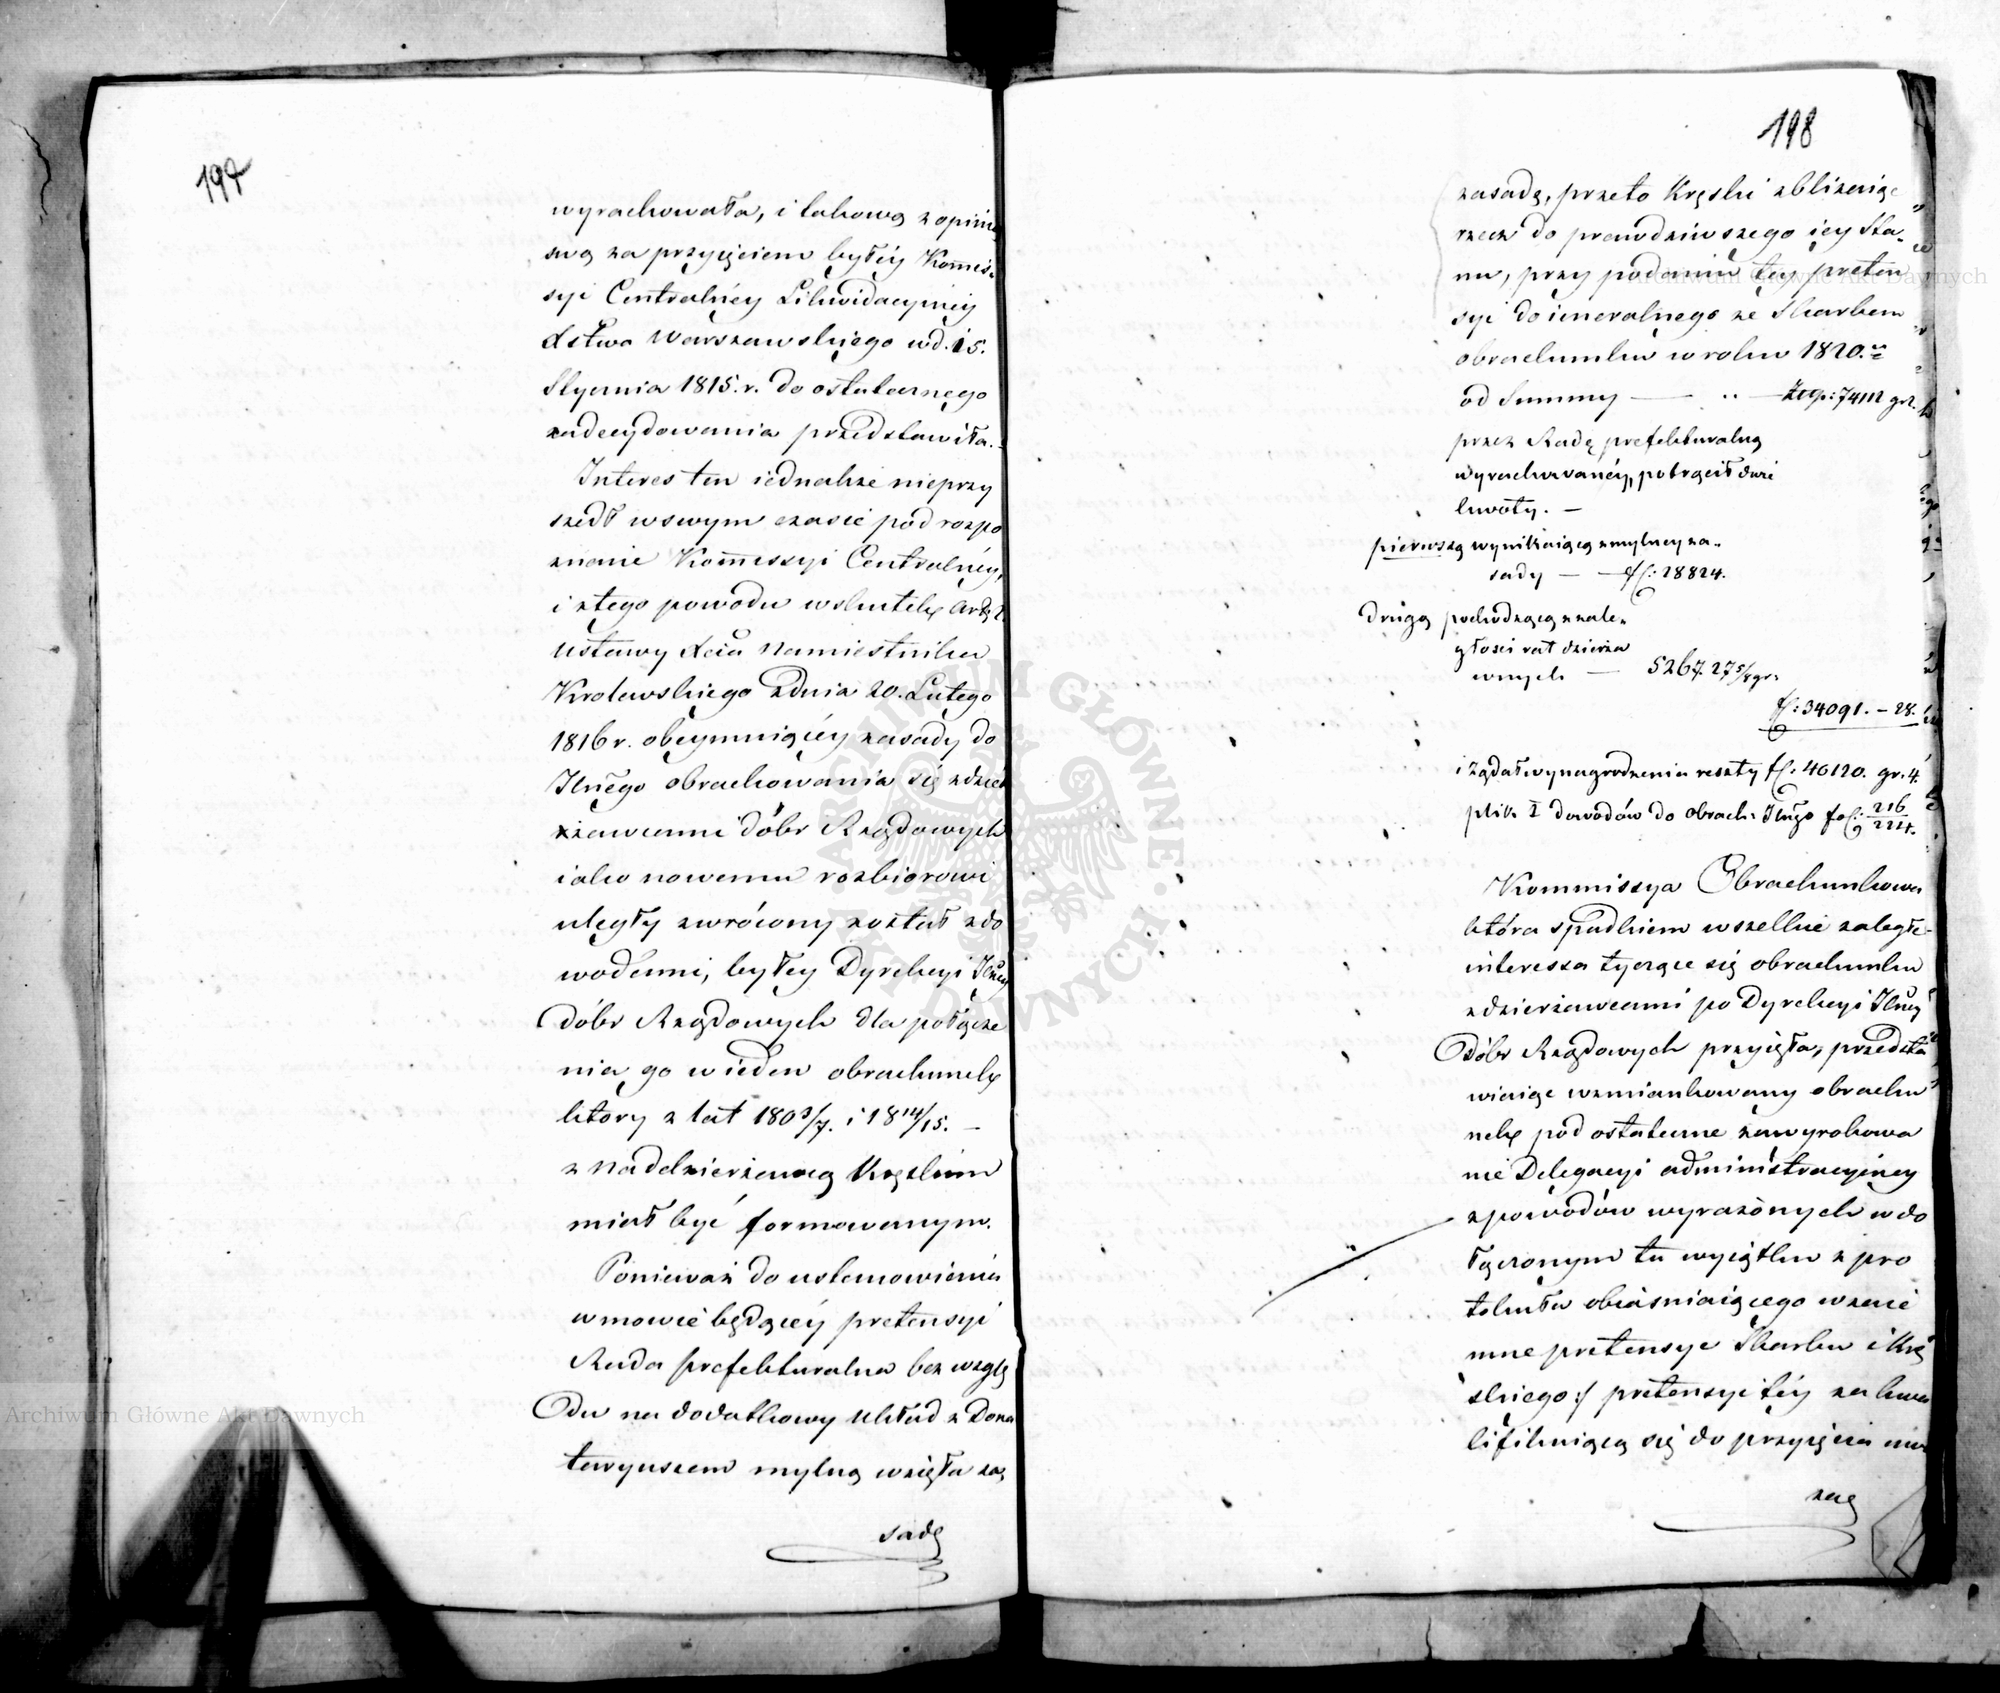 197
wyrachowała, i takową z opinią
swą za przyjęciem byłéy Kom̄is-
syi Centralnéy Likwidacyinéy
Xstwa Warszawskiego w d. 15.
Stycznia 1815. r. do ostatecznego
zadecydowania przedstawiła. -
Interes ten iednakże nieprzy
szedł w swym czasie pod rozpo
znanie Kom̄issyi Centralnéy,
i z tego powodu w skutek
Ustawy Xcia Namiestnika
Krolewskiego z dnia 20. Lutego
1816 r. obeymuiącéy zasady do
obrachowania się z dzier
żawcami dóbr Rządowych
iako nowemu rozbiorowi
uległy zwrócony został z do
wodami, byłey Dyrekcyi
dóbr Rządowych dla połącze
nia go w ieden obrachunek
ktory z lat 180 3/7. i 18 14/15. -
z Naddzierżawcą Kęskim
miał być formowanym.
Ponieważ do ustanowienia
w mowie będącéy pretensyi
Rada prefekturalna bez wzglę
du na dodatkowy układ z Dona
taryuszem mylną wzięła za
sadę
198
zasadę, przeto Kęski zbliżaiąc
rzecz do prawdziwszego iey sta-
nu, przy podaniu tey preten
syi do ieneralnego ze Skarbem
obrachunku w roku 1820.
od Summy — .. — Złp: 74112 gr 2.
przez Radę prefekturalną
wyrachowanéy, potrącił dwie
kwoty. —
pierwszą wynikaiącą z mylney za-
sady — — fl: 28824.
drugą pochodzącą z zale-
głości rat dzierża
wnych — 5267. 27 5/8 gr:
fl: 34091. - 28.
i żądał wynagrodzenia reszty fl: 40120. gr: 4
plik I dowodów do obrach: fol: 216/224.
Kommissya Obrachunkowa
która spadkiem wszelkie zaległe
interessa tyczące się obrachunku
z dzierżawcami po Dyrekcyi
Dóbr Rządowych przyięła, przedsta
wiaiąc wzmiankowany obrachu
nek pod ostateczne zawyrokowa
nie Delegacyi administracyiney
z powodów wyrażonych w do
łączonym tu wyiątku z pro
tokułu obiaśniaiącego wzaie
mne pretensye Skarbu i Kę
skiego :/ pretensyi téy za kwa
lifikuiącą się do przyięcia nie